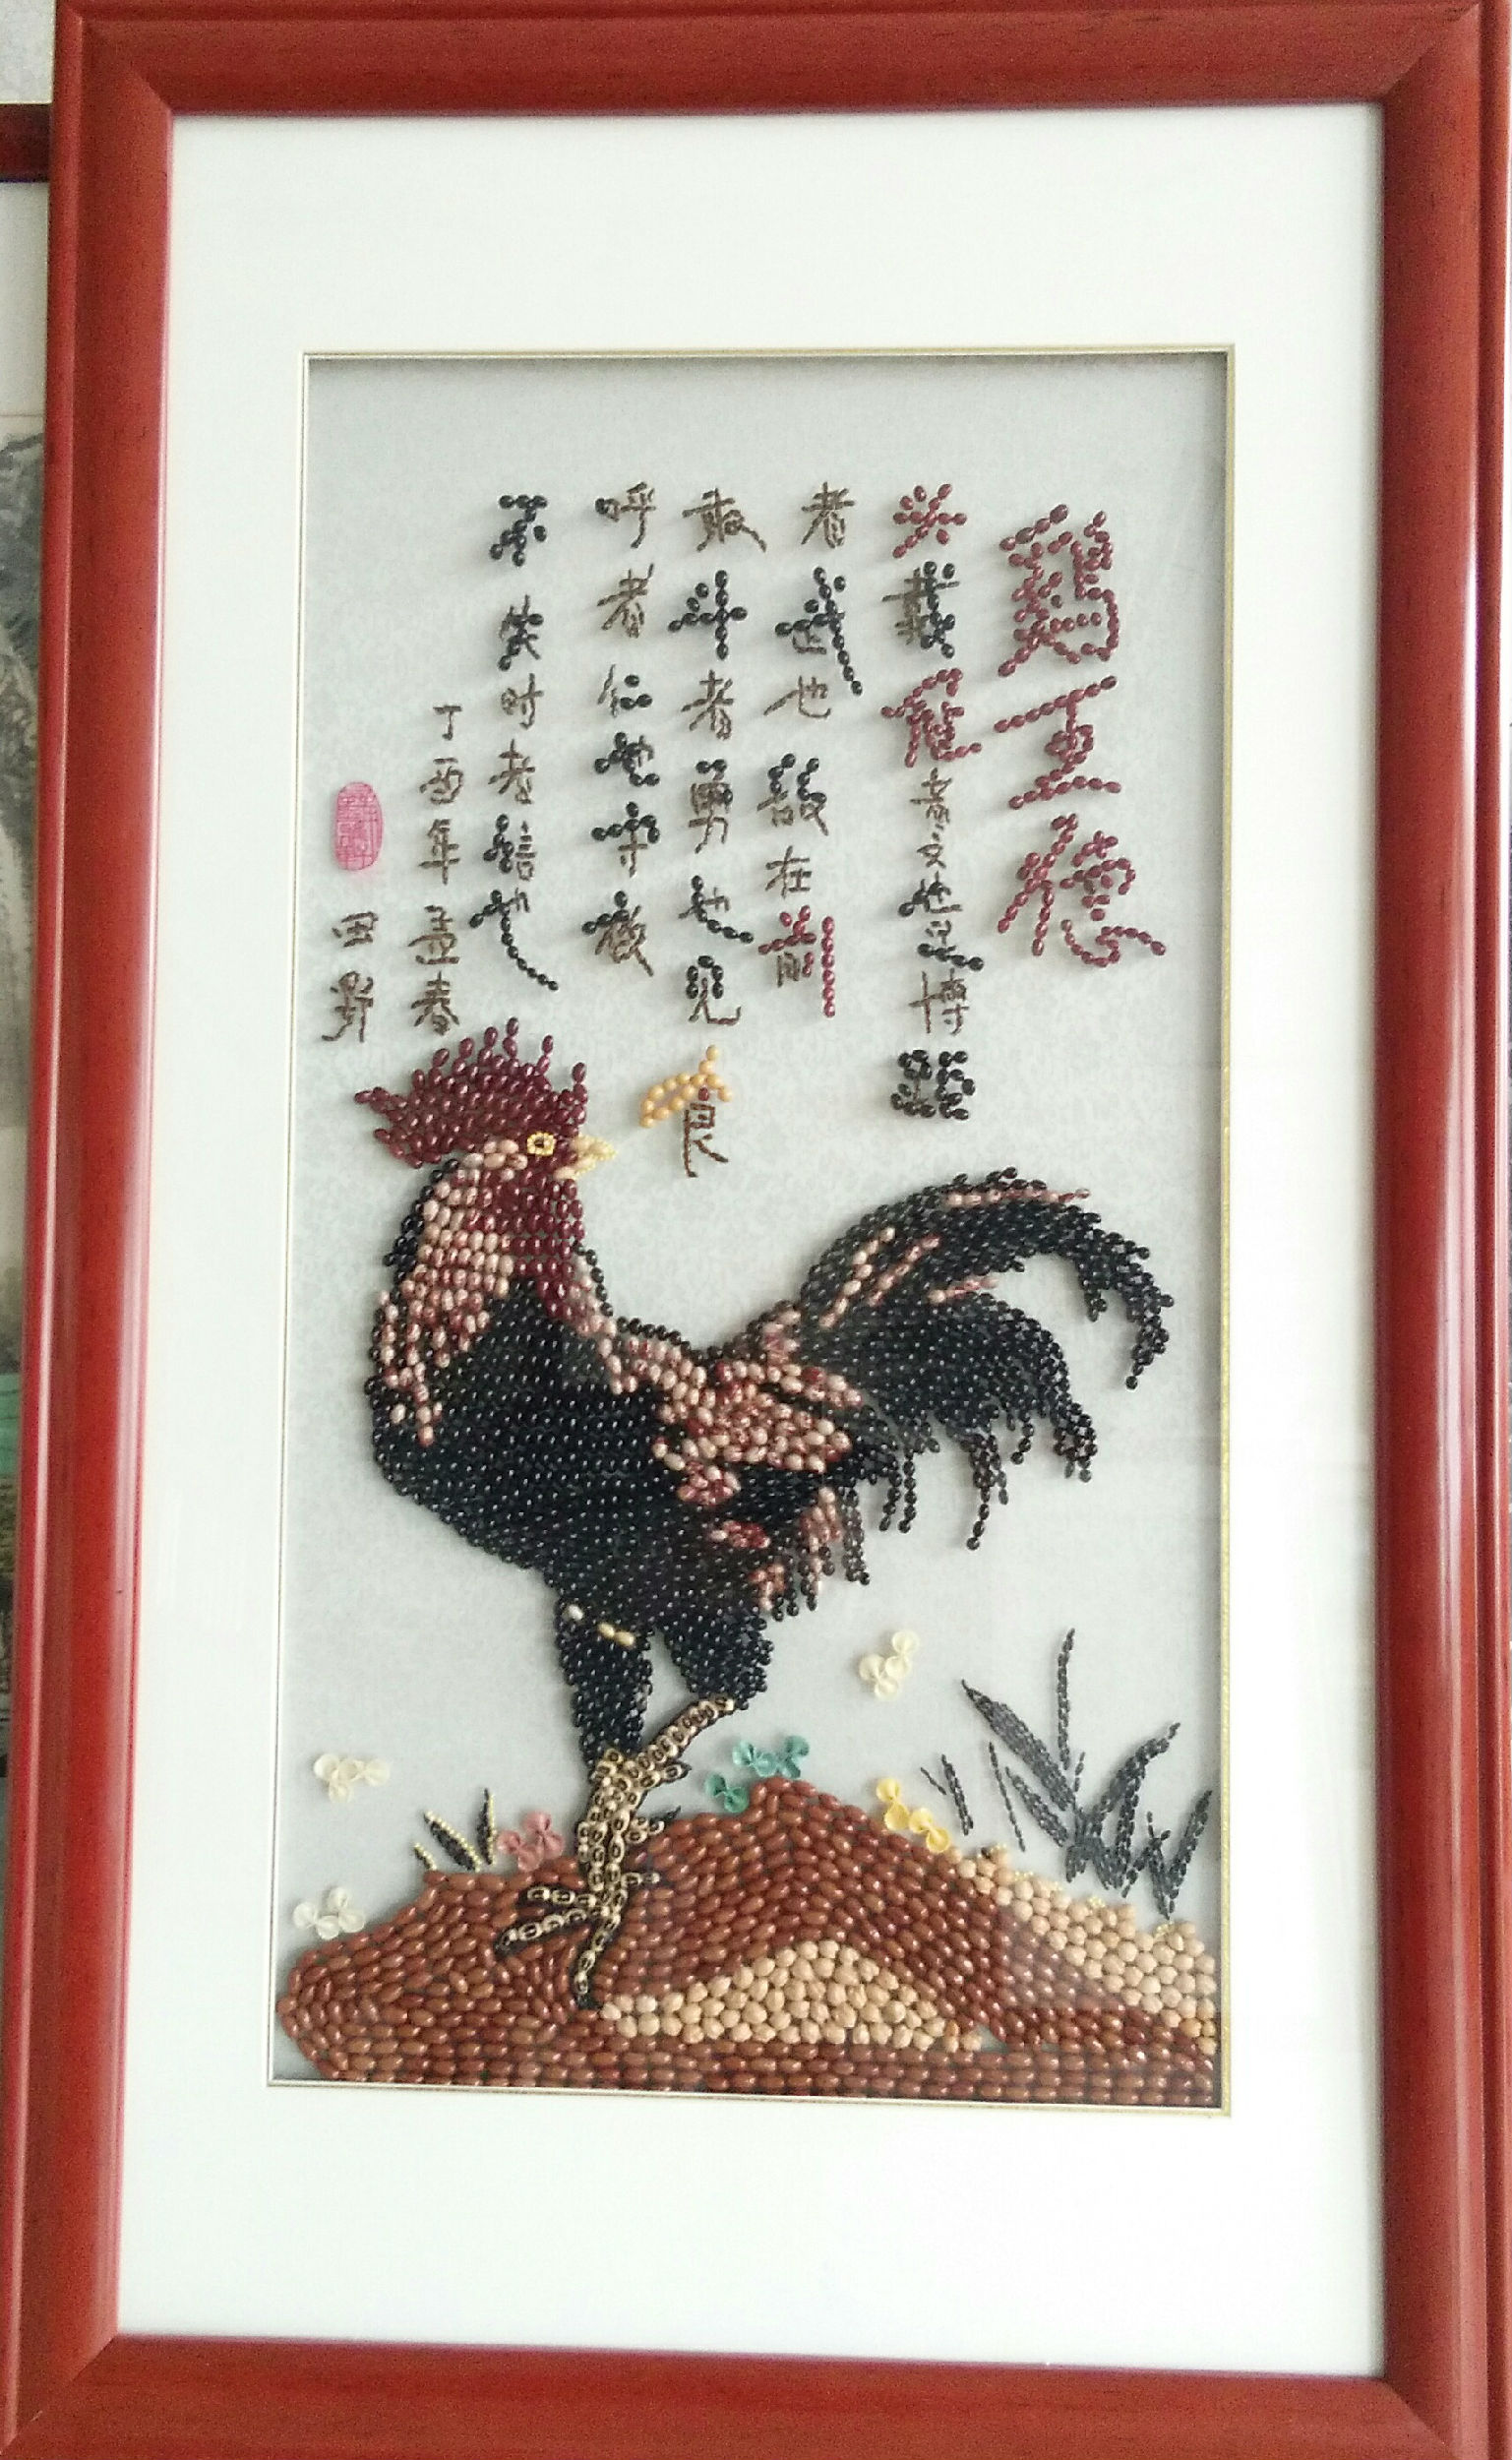 鷄五德
头戴冠者文也足博距
者武也敌在前
敢斗者勇也见食
呼者仁也守夜
不失时者信也
丁酉年孟春
田